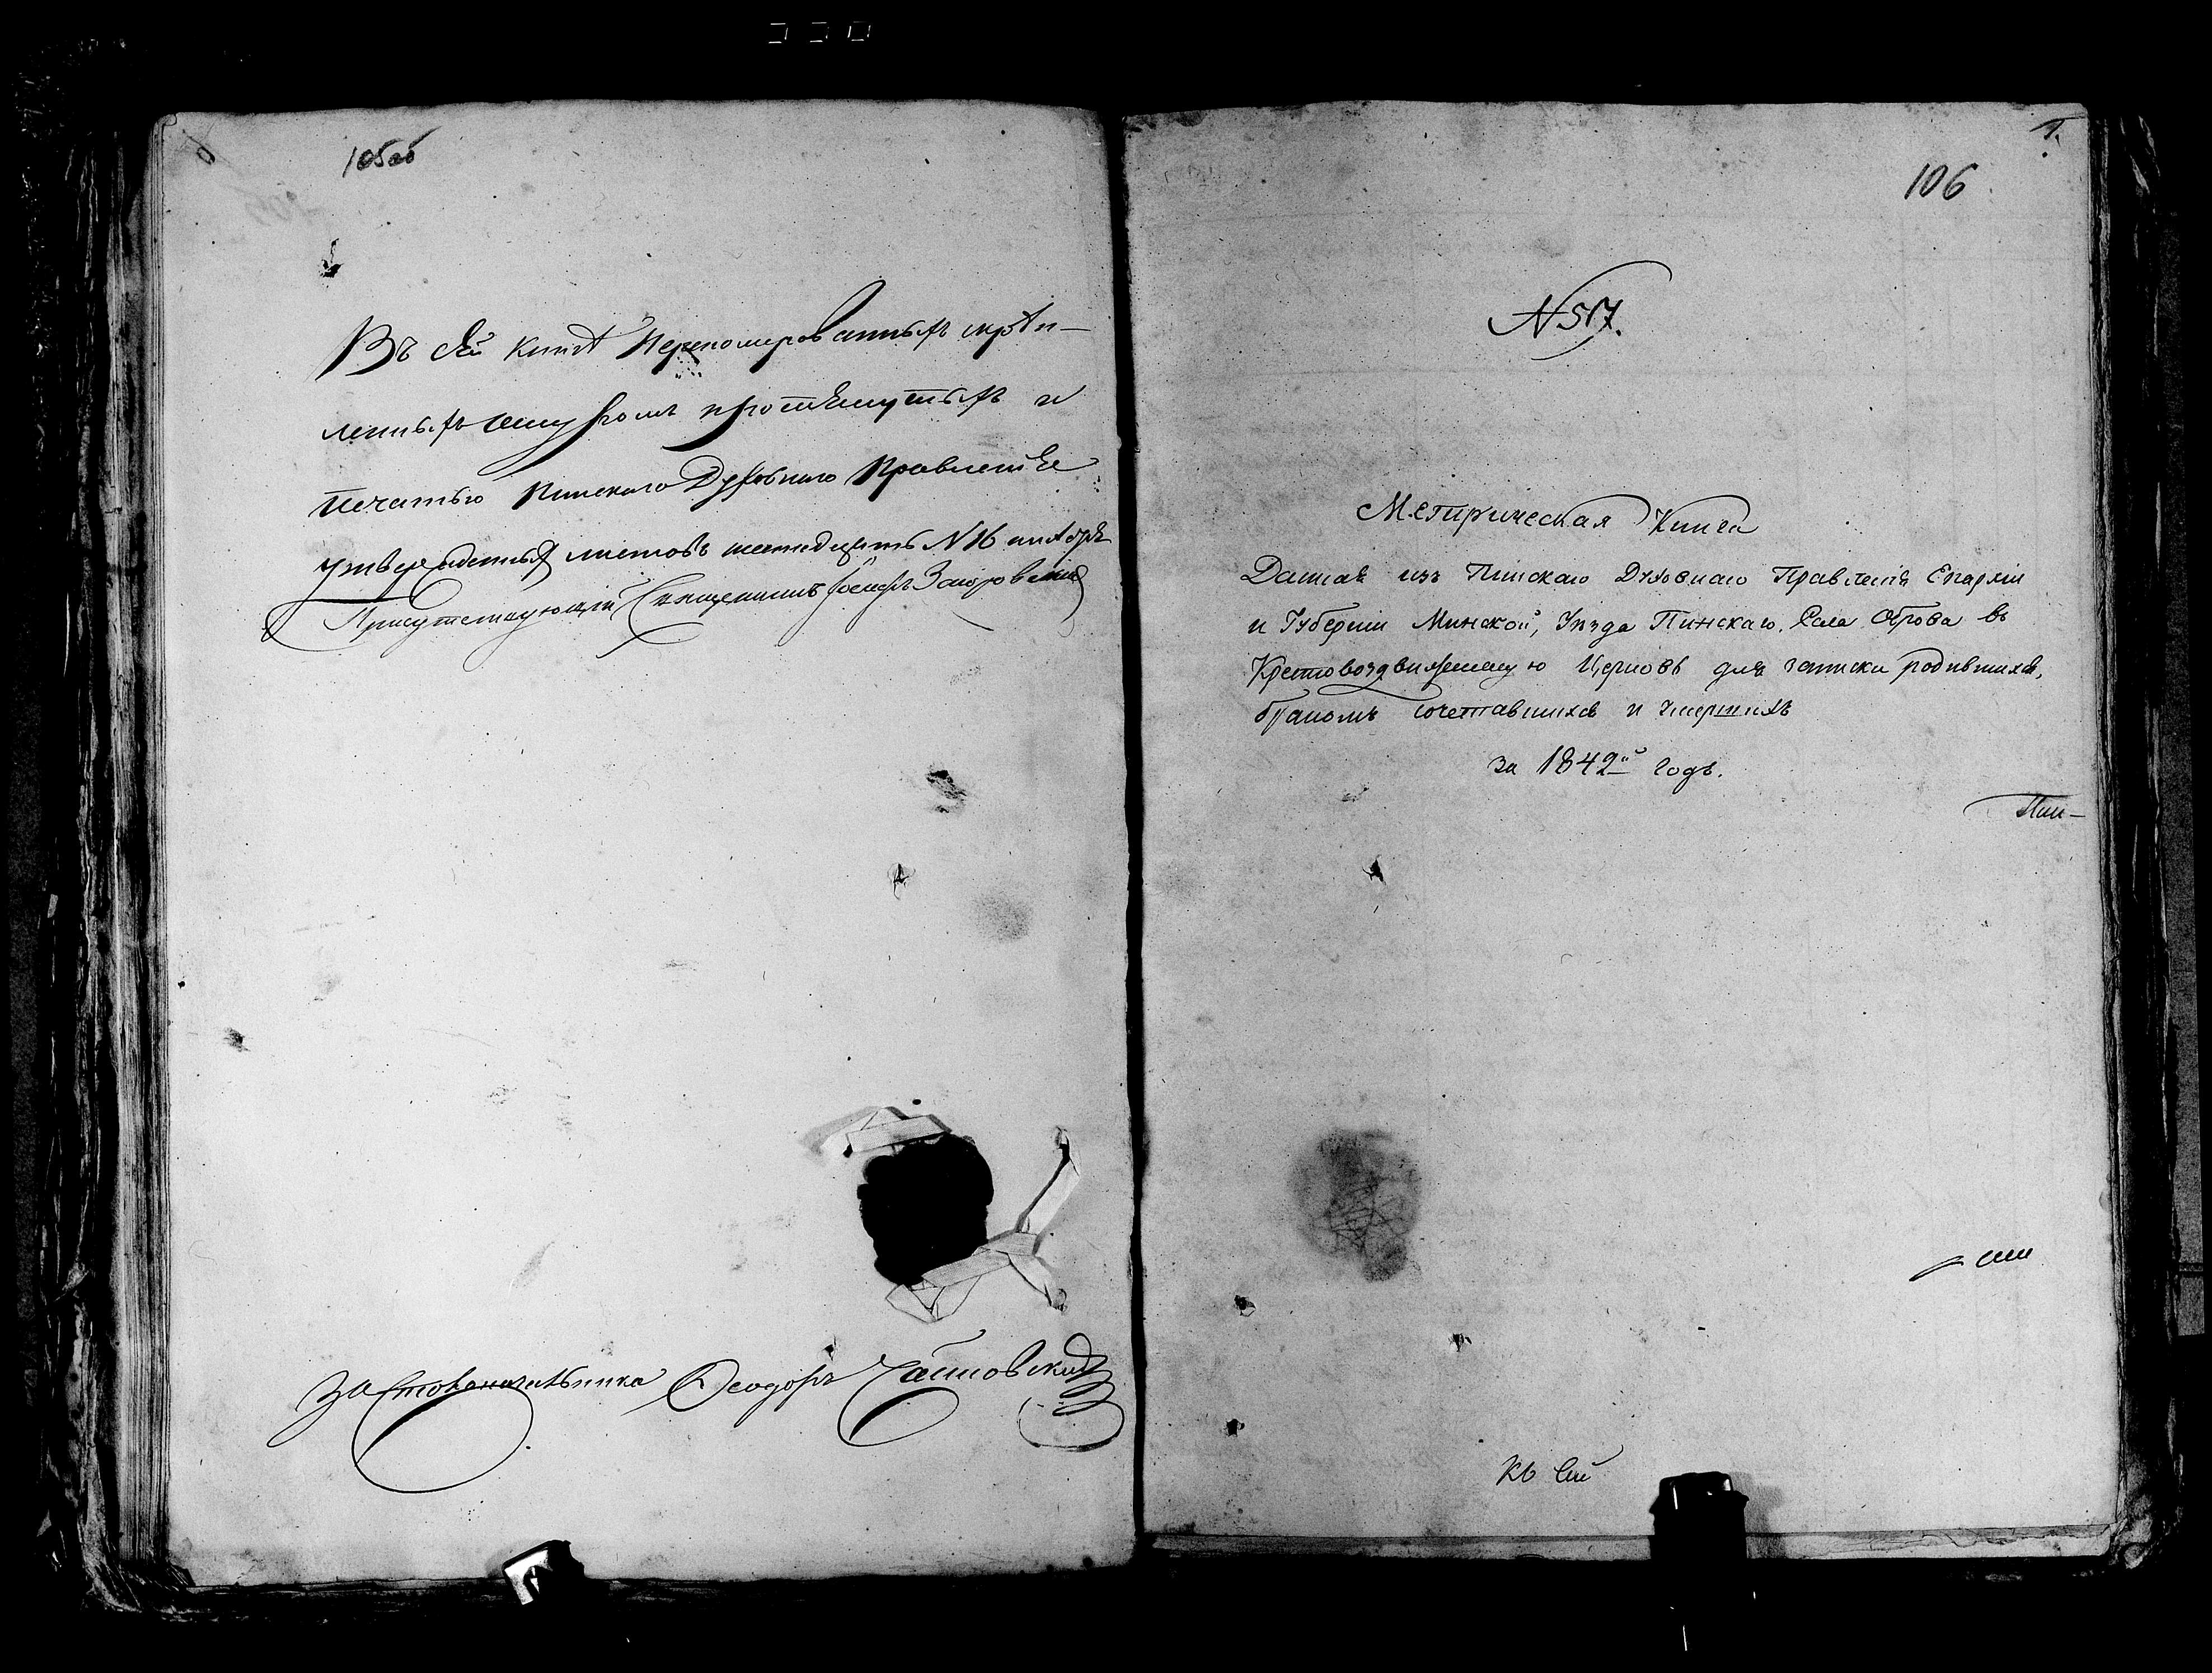 105об
Въ сей книгѣ Переномерованныхъ скрѣп-
ленныхъ шнуромъ протянутыхъ и
печатью Пинскаго Духовнаго Правленія
утвержденныхъ листовъ шестнадцать N 16 ноября
Присутствующій Священникъ
За Столоначальника Ѳеодоръ
1.
106
N 517.
Метрическая Книга
Данная изъ Пинскаго Духовнаго Правленія Епархіи
и Губерніи Минской, Уѣзда Пинскаго, Села Оброва въ
Крестовоздвиженскую Церковь для записки родившихся,
бракомъ сочетавшихся и умершихъ
за 1842й годъ.
Пин-
Къ сей